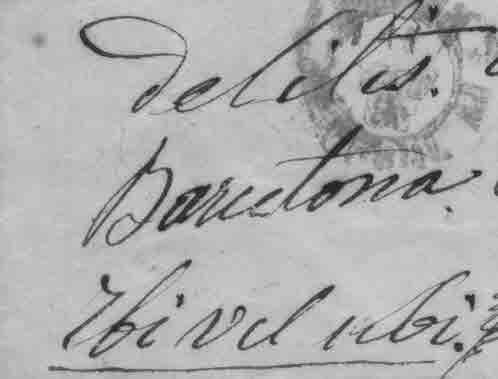 Delitis.
Barcelona.
Ibi vel ubi.